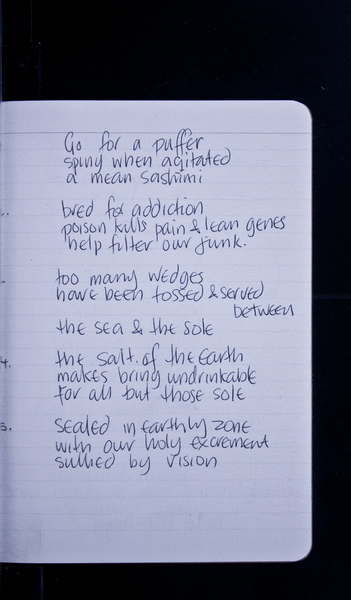 Go for a puffer
spiny when agitated
a mean sashimi
bred for addiction
poison kills pain & lean genes
help filter our junk.
too many wedges
have been tossed & served
between
the sea & the sole
4. the salt of the earth
makes bring undrinkable
for all but those sole
5. sealed in earthly zone
with our holy excrement
sullied by vision